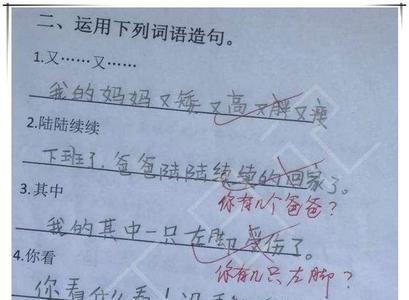 二、运用下列词语造句。
1.又……又……
我的妈妈又矮又高又胖又瘦
2.陆陆续续
下班了,爸爸陆陆续续的回家了。
你有几个爸爸?
3.其中
我的其中一只左脚受伤了。
你有几只左脚?
4.你看
你看什么看!没